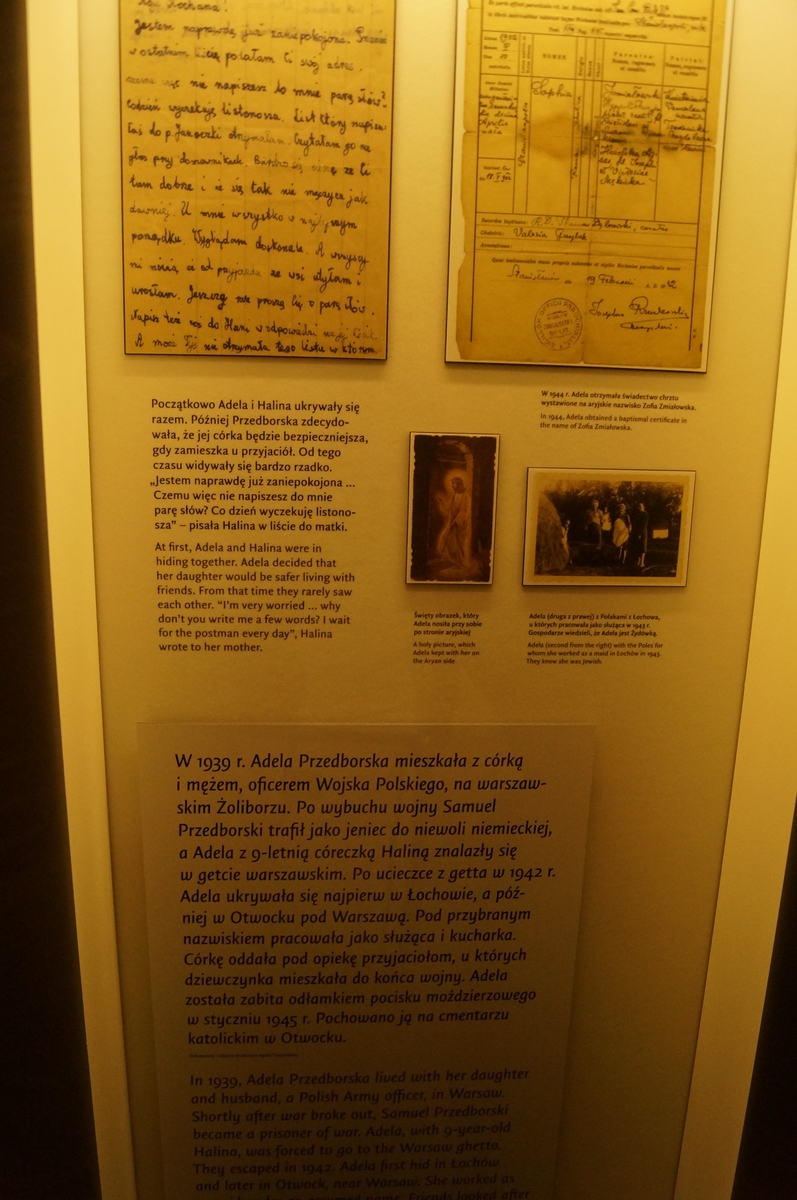 Jestem naprawdę już zaniepokojona. Przecież
w ostatnim liście podałam Ci swój adres.
czemu więc nie napiszesz do mnie parę słów?
Codzień wyczekuję listonosza. List który napisa-
łaś do p. otrzymałam. Czytałam go na
głos przy domownikach. Bardzo się cieszę że Ci
tam dobrze i że się tak nie męczysz jak
dawniej. U mnie wszystko w najlepszym
porządku. Wyglądam doskonale. A wszyscy
mi mówią, że od przyjazdu ze wsi utyłam i
urosłam. Jeszcze raz proszę Cię o parę słów.
Napisz też coś do Hani w odpowiedzi na jej liścik.
A może Ty nie otrzymałaś tego listu w którym
NOMEN
Sophia
Valeria
Stanisławów
19 Februarii
Początkowo Adela i Halina ukrywały się
razem. Później Przedborska zdecydo-
wała, że jej córka będzie bezpieczniejsza,
gdy zamieszka u przyjaciół. Od tego
czasu widywały się bardzo rzadko.
„Jestem naprawdę już zaniepokojona ...
Czemu więc nie napiszesz do mnie
parę słów? Co dzień wyczekuję listono-
sza” – pisała Halina w liście do matki.
At first, Adela and Halina were in
hiding together. Adela decided that
her daughter would be safer living with
friends. From that time they rarely saw
each other. “I’m very worried ... why
don’t you write me a few words? I wait
for the postman every day”, Halina
wrote to her mother.
W 1944 r. Adela otrzymała świadectwo chrztu
wystawione na aryjskie nazwisko Zofia Zmiałowska.
In 1944, Adela obtained a baptismal certificate in
the name of Zofia Zmiałowska.
Święty obrazek, który
Adela nosiła przy sobie
po stronie aryjskiej
A holy picture, which
Adela kept with her on
the Aryan side
Adela (druga z prawej) z Polakami z Łochowa,
u których pracowała jako służąca w 1943 r.
Gospodarze wiedzieli, że Adela jest Żydówką.
Adela (second from the right) with the Poles for
whom she worked as a maid in Łochów in 1943.
They knew she was Jewish.
W 1939 r. Adela Przedborska mieszkała z córką
i mężem, oficerem Wojska Polskiego, na warszaw-
skim Żoliborzu. Po wybuchu wojny Samuel
Przedborski trafił jako jeniec do niewoli niemieckiej,
a Adela z 9-letnią córeczką Haliną znalazły się
w getcie warszawskim. Po ucieczce z getta w 1942 r.
Adela ukrywała się najpierw w Łochowie, a póź-
niej w Otwocku pod Warszawą. Pod przybranym
nazwiskiem pracowała jako służąca i kucharka.
Córkę oddała pod opiekę przyjaciołom, u których
dziewczynka mieszkała do końca wojny. Adela
została zabita odłamkiem pocisku moździerzowego
w styczniu 1945 r. Pochowano ją na cmentarzu
katolickim w Otwocku.
In 1939, Adela Przedborska lived with her daughter
and husband, a Polish Army officer, in Warsaw.
Shortly after war broke out, Samuel Przedborski
became a prisoner of war. Adela, with 9-year-old
Halina, was forced to go to the Warsaw ghetto.
They escaped in 1942. Adela first hid in Łochów
and later in Otwock, near Warsaw. She worked as
name. Friends looked after